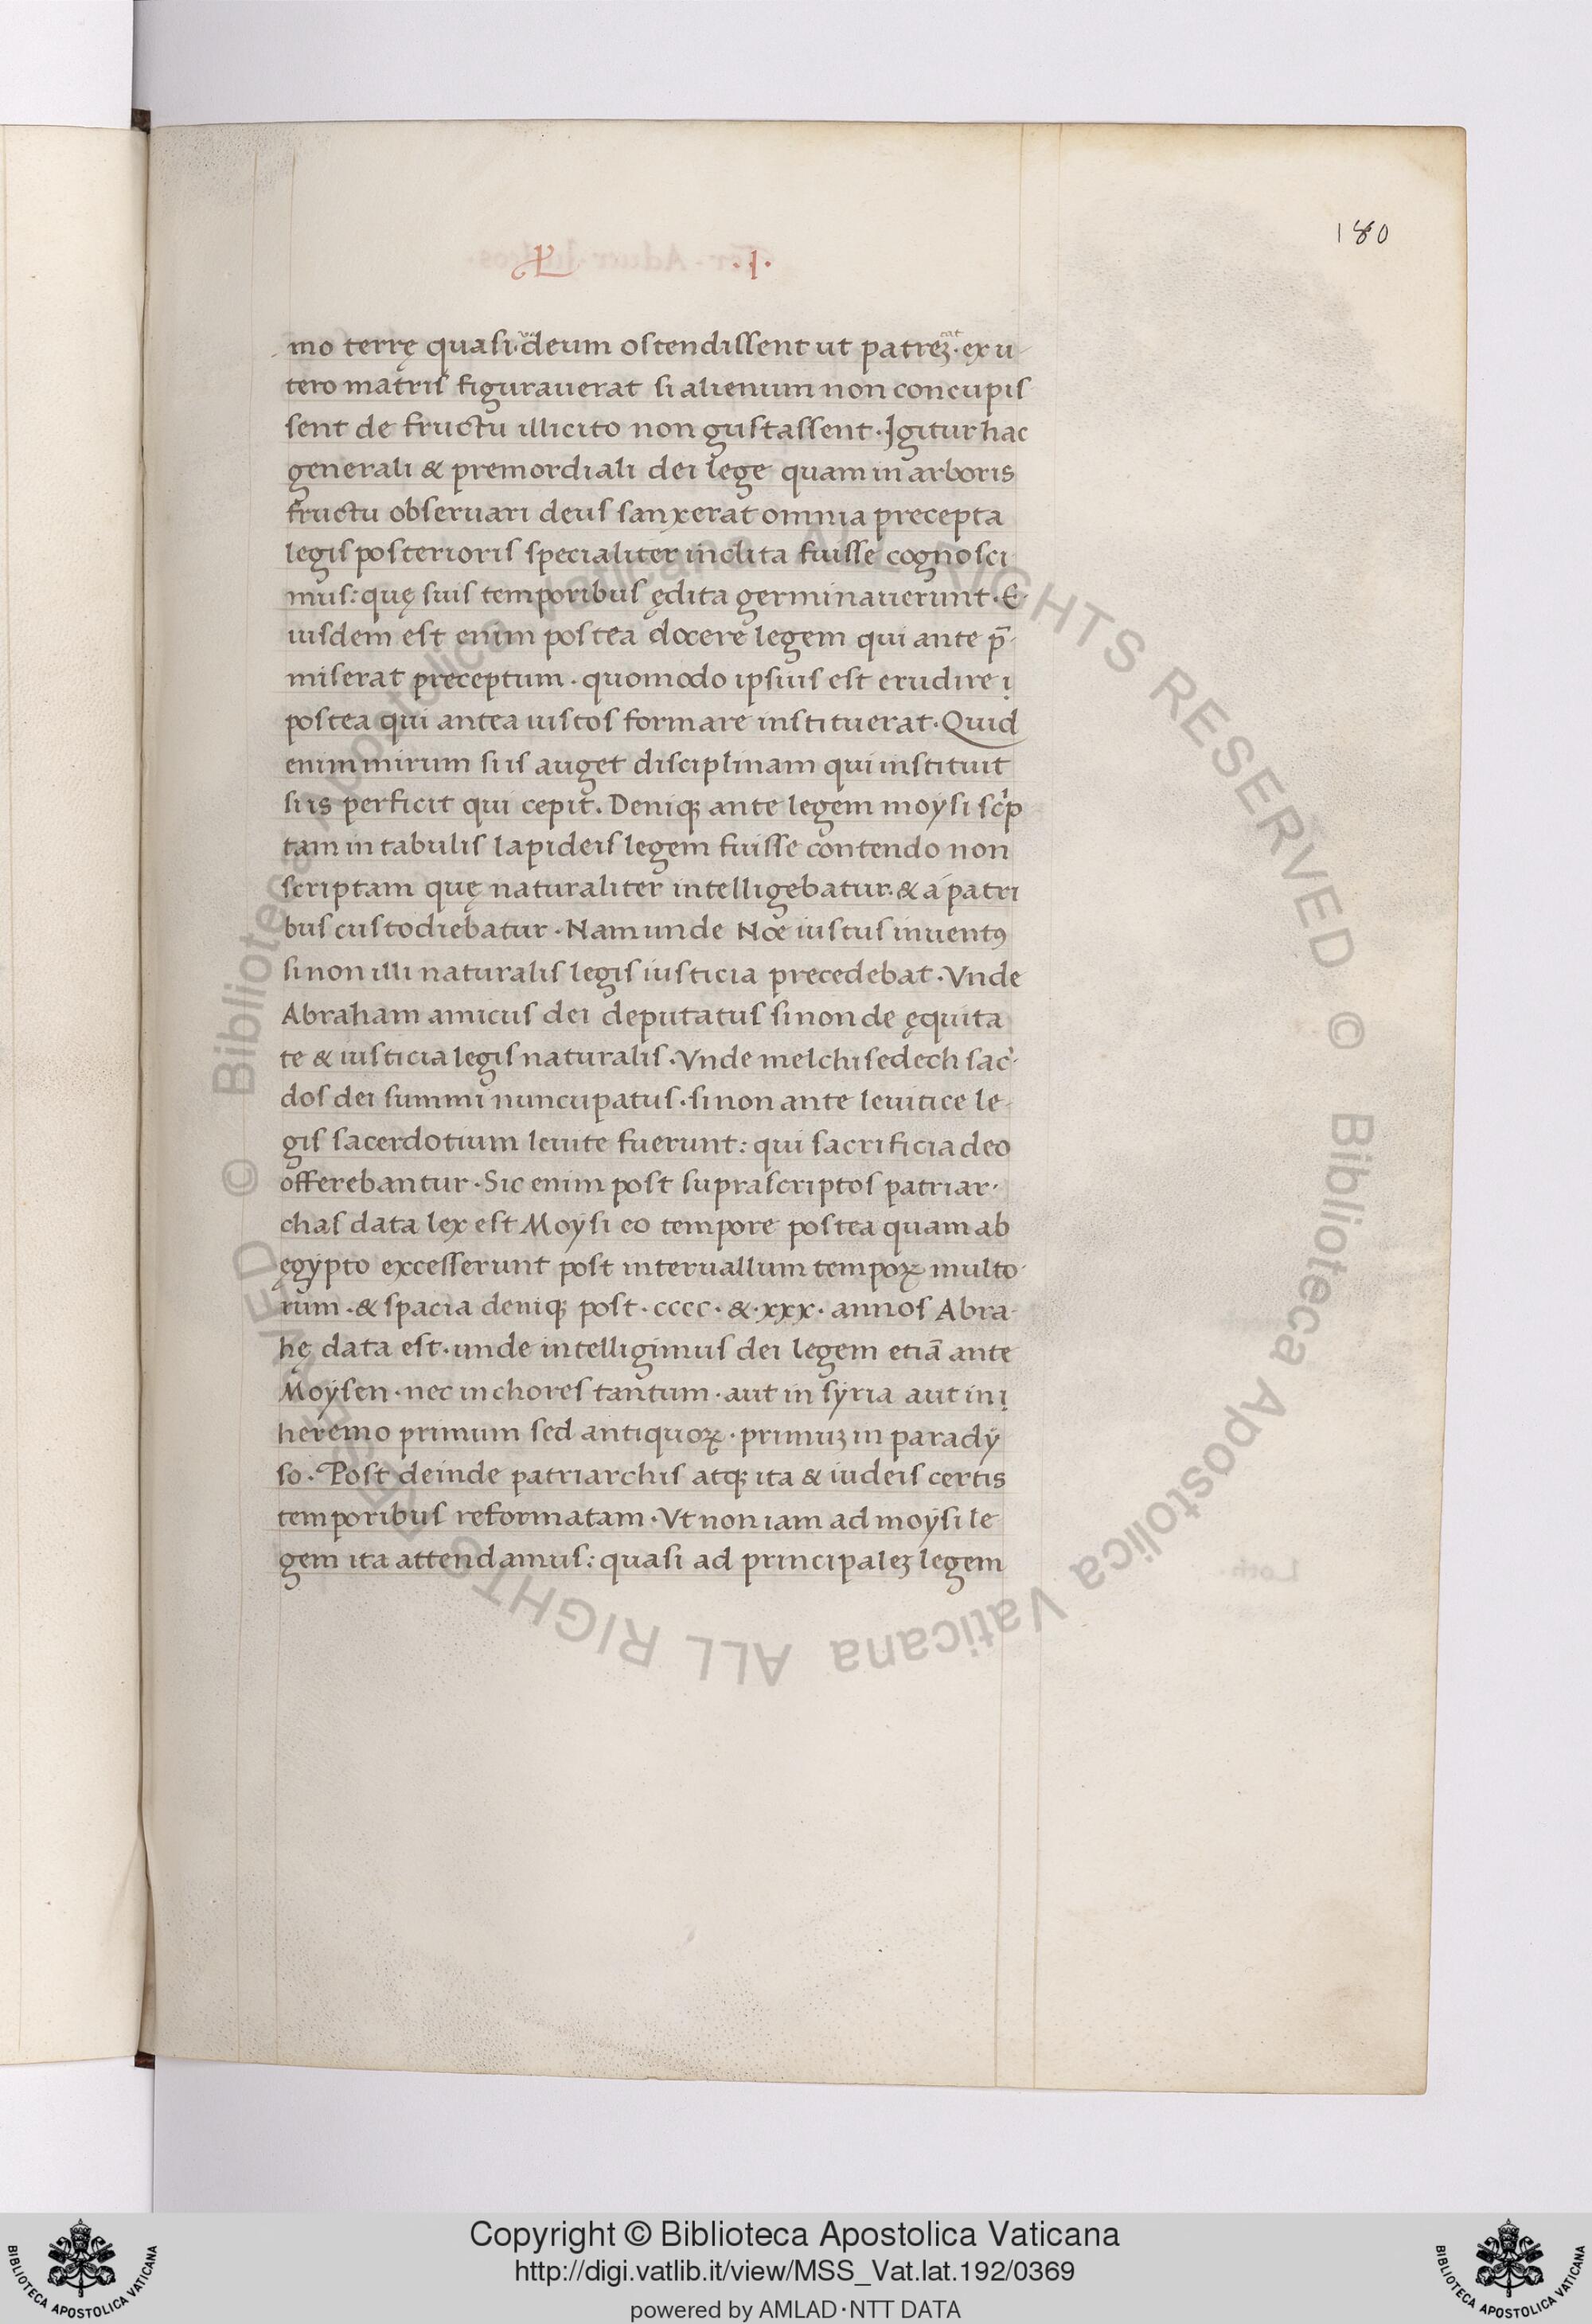 180
.I.
mo terrę quasi·deum ostendissent ut patreꝫ·ex u-
tero matris figurauerat si alienum non concupis
sent de fructu illicito non gustassent·Igitur hac
generali & premordiali dei lege quam in arboris
fructu obseruari deus sanxerat omnia precepta
legis posterioris specialiter indita fuisse cognosci
mus: quę suis temporibus ędita germinauerunt·E-
iusdem est enim postea docere legem qui ante p̄-
miserat preceptum·quomodo ipsius est erudire
postea qui antea iustos formare instituerat·Quid
enim mirum si is auget disciplinam qui instituit
si is perficit qui cepit. Deniqꝫ ante legem moysi scͥp
tam in tabulis lapideis legem fuisse contendo non
scriptam quę naturaliter intelligebatur·& a patri
bus custodiebatur·Nam unde Noe iustus inuentꝰ
si non illi naturalis legis iusticia precedebat·Vnde
Abraham amicus dei deputatus si non de ęquita
te & iusticia legis naturalis·Vnde melchisedech sac̉-
dos dei summi nuncupatus·si non ante leuitice le-
gis sacerdotium leuite fuerunt: qui sacrificia deo
offerebantur·Sic enim post suprascriptos patriar-
chas data lex est Moysi eo tempore postea quam ab
ęgypto excesserunt post interuallum tempoꝝ multo-
rum·& spacia deniqꝫ post·cccc·&·xxx·annos Abra-
hę data est·unde intelligimus dei legem etiā ante
Moysen·nec in chores tantum·aut in syria aut in
heremo primum sed antiquoꝝ·primuꝫ in parady
so·Post deinde patriarchis atqꝫ ita & iudeis certis
temporibus reformatam·Vt non iam ad moysi le
gem ita attendamus: quasi ad principaleꝫ legem
Copyright © Biblioteca Apostolica Vaticana
http://digi.vatlib.it/view/MSS_Vat.lat.192/0369
powered by AMLAD·NTT DATA
BIBLIOTECA APOSTOLICA VATICANA
BIBLIOTECA APOSTOLICA VATICANA
© Biblioteca Apostolica Vaticana ALL RIGHTS RESERVED © Biblioteca Apostolica Vaticana ALL RIGHTS RESERVED